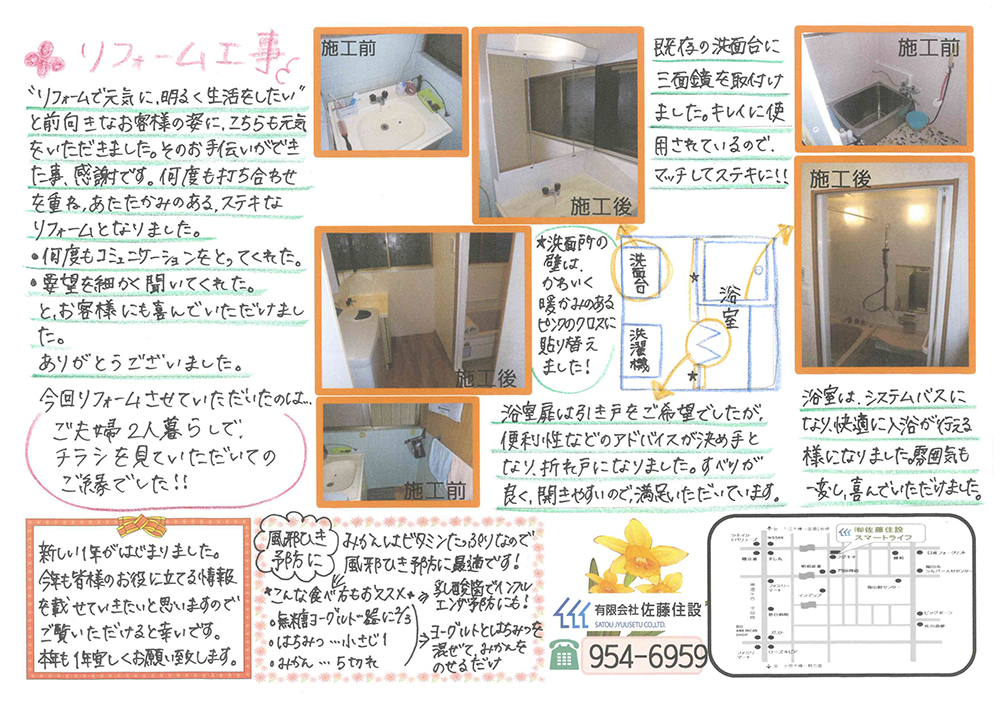 リフォーム工事
"リフォームで元気に、明るく生活をしたい"
と前向きなお客様の姿に、こちらも元気
をいただきました。そのお手伝いができ
た事、感謝です。何度も打ち合わせ
を重ね、あたたかみのある、ステキな
リフォームとなりました。
•何度もコミュニケーションをとってくれた。
•要望を細かく聞いてくれた。
と、お客様にも喜んでいただけまし
た。
ありがとうございました。
今回リフォームさせていただいたのは…
ご夫婦2人暮らしで、
チラシを見ていただいての
ご縁でした!!
施工前
施工後
既存の洗面台に
三面鏡を取付け
ました。キレイに使
用されているので、
マッチしてステキに!!
施工前
施工後
施工後
施工前
★洗面所の
壁は、
かわいく
暖かみのある
ピンクのクロスに
貼り替え
ました!
洗面台
洗濯機
浴室
★
★
浴室扉は引き戸をご希望でしたが、
便利性などのアドバイスが決め手と
なり、折れ戸になりました。すべりが
良く、開きやすいので、満足いただいています。
浴室は、システムバスに
なり、快適に入浴が行える
様になりました。雰囲気も
一変し、喜んでいただけました。
新しい1年がはじまりました。
今年も皆様のお役に立てる情報
を載せていきたいと思いますので
ご覧いただけると幸いです。
本年も1年宜しくお願い致します。
風邪ひき
予防に
みかんはビタミンたっぷりなので
風邪ひき予防に最適です!
*こんな食べ方もおススメ*
•無糖ヨーグルト…器に2/3
•はちみつ…小さじ1
•みかん…5切れ
乳酸菌でインフル
エンザ予防にも!
→ヨーグルトとはちみつを
混ぜて、みかんを
のせるだけ
有限会社 佐藤住設
SATOU JYUUSETU CO.,LTD.
954-6959
㈲佐藤住設
スマートライフ